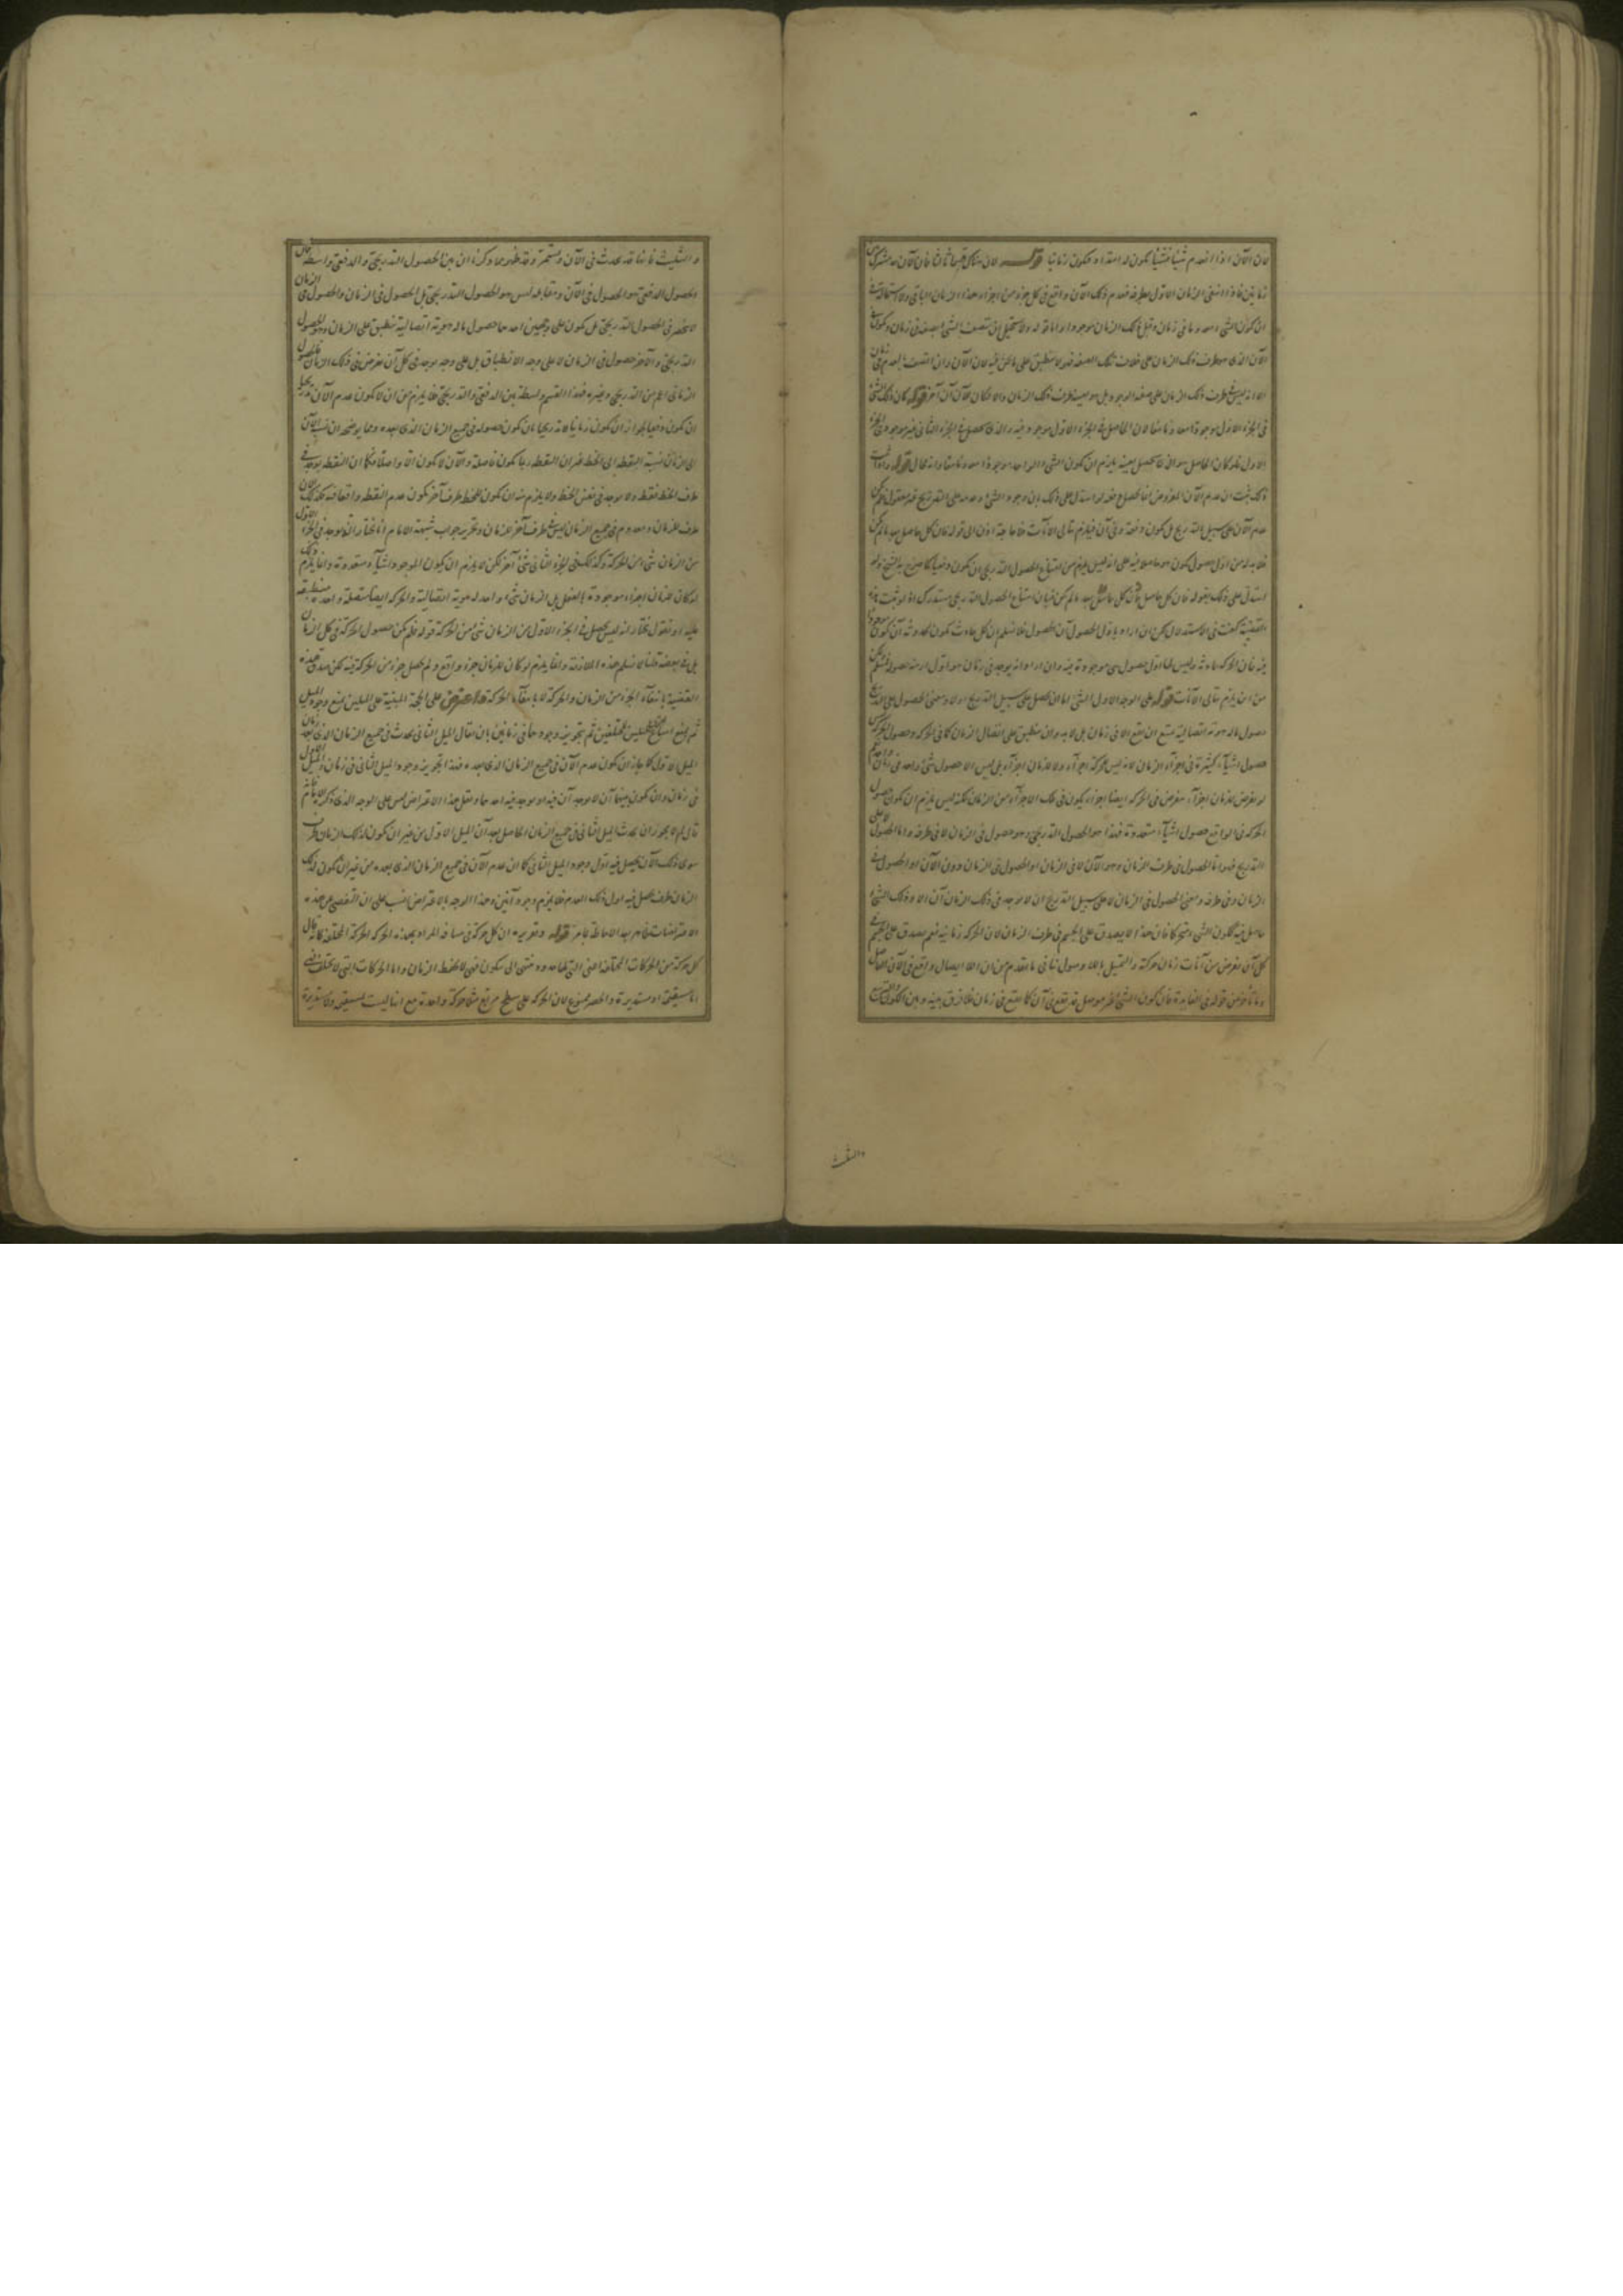 فان الآن اذا انعدم شيئا فشيئا يكون له امتداد فيكون زمانيا قوله لان هناك قسما ثالثا فان الآن حد مشترك بين
زمانين فاذا انتفى الزمان الاول بطرفه فعدم ذلك الآن واقع فى كل جزء من اجزاء هذا الزمان الباقى ولا استحالة فى
ان يكون الشئ معدوما فى زمان وقبل ذلك الزمان موجودا واما قوله ولا يستحيل ان يتصف الشئ بصفة فى زمان ويكون فى
الآن الذى هو طرف ذلك الزمان على خلاف تلك الصفة فهو لا ينطبق على ما نحن فيه لان الآن وان اتصف بالعدم فى زمان
الا انه ليس فى طرف ذلك الزمان على صفة الوجود بل هو بعينه طرف ذلك الزمان والا لكان للآن آن آخر قوله كان ذلك الشئ
فى الجزء الاول موجودا معدوما معا لان الحاصل فى الجزء الاول موجود فيه والذى يحصل فى الجزء الثانى غير موجود فى الجزء
الاول فلو كان الحاصل هو الذى يحصل بعينه يلزم ان يكون الشئ الواحد موجودا معدوما معا وانه محال قوله واذا ثبت
ذلك ثبت ان عدم الآن المفروض انما يحصل دفعة لما استدل على ذلك بان وجود الشئ وعدمه على التدريج غير معقول فلم يكن
عدم الآن على سبيل التدريج بل يكون دفعة وفى آن فيلزم تتالى الآنات فلا حاجة اذن الى قوله فان كل حاصل بعد ما لم يكن
فلا بد له من اول حصول يكون هو حاصلا فيه على انه ليس يلزم من امتناع الحصول التدريجى ان يكون دفعيا كما صرح به الشيخ ولو
استدل على ذلك بقوله فان كل حاصل بعد ما لم يكن فبيان امتناع الحصول التدريجى مستدرك اذ لو ثبت هذه
القضية كفت فى الاستدلال لكن ان اراد باول الحصول آن الحصول فلا نسلم ان كل حادث يكون لحدوثه آن يكون موجودا
فيه فان الحركة حادثة وليس لها اول حصول هى موجودة فيه وان اراد انه يوجد فى زمان هو اول ازمنة حصوله فمسلم لكن
من اين يلزم تتالى الآنات قوله على الوجه الاول الشئ اما ان يحصل على سبيل التدريج او لا ومعنى الحصول على التدريج
حصول ماله هوية اتصالية يمتنع ان يقع الا فى زمان بل لا بد وان ينطبق على اتصال الزمان كما فى الحركة وحصول الحركة ليس
حصول اشياء كثيرة فى اجزاء الزمان لانه ليس للحركة اجزاء ولا للزمان اجزاء بل ليس الا حصول شئ واحد فى زمان واحد نعم
لو يفرض للزمان اجزاء يفرض فى الحركة ايضا اجزاء يكون فى تلك الاجزاء من الزمان لكنه ليس يلزم ان يكون حصول
الحركة فى الواقع حصول اشياء متعددة فهذا هو الحصول التدريجى وهو حصول فى الزمان لا فى طرفه واما الحصول لا على
التدريج فهو اما الحصول فى طرف الزمان وهو الآن لا فى الزمان او الحصول فى الزمان دون الآن او الحصول فى
الزمان وفى طرفه ومعنى الحصول فى الزمان لا على سبيل التدريج ان لا يوجد فى ذلك الزمان آن الا وذلك الشئ
حاصل فيه ككون الشئ متحركا فان هذا لا يصدق على الجسم فى طرف الزمان لان الحركة زمانية فلم يصدق على الجسم فى
كل آن يفرض من آنات زمان حركته والتمثيل باللاوصول ينافى ما تقدم من ان اللاايصال واقع فى الآن الفاصل
وما تأخر من قوله فى الفايدة فان كون الشئ غير موصل قد يقع فى آن كما يقع فى زمان فلا فرق بينه وبين الكون
والتثليث
والتثليث فانها قد يحدث فى الآن ويستمر وقد ظهر مما ذكرنا ان بين الحصول التدريجى والدفعى واسطة فان
الحصول الدفعى هو الحصول فى الآن ومقابله ليس هو الحصول التدريجى بل الحصول فى الزمان والحصول فى الزمان
لا ينحصر فى الحصول التدريجى بل يكون على وجهين احدهما حصول ماله هوية اتصالية ينطبق على الزمان وهو الحصول
التدريجى والآخر حصول فى الزمان لا على وجه الانطباق بل على وجه يوجد فى كل آن يفرض فى ذلك الزمان فالحصول
الزمانى اعم من التدريجى وغيره فهذا القسم واسطة بين الدفعى والتدريجى فلا يلزم من ان لا يكون عدم الآن تدريجيا
ان يكون دفعيا لجواز ان يكون زمانيا لا تدريجيا بان يكون حصوله فى جميع الزمان الذى بعده ومما يوضحه ان نسبة الآن
الى الزمان نسبة النقطة الى الخط غير ان النقطة ربما يكون فاصلة والآن لا يكون الا واصلا فكما ان النقطة يوجد فى
طرف الخط فقط ولا يوجد فى نفس الخط ولا يلزم منه ان يكون للخط طرف آخر يكون عدم النقطة واقعا فيه فكذلك الآن
طرف للزمان ومعدوم فى جميع الزمان ليس فى طرف آخر للزمان وتحرير جواب شبهة الامام انا نختار انه يوجد فى الجزء الاول
من الزمان شئ من الحركة وكذلك فى الجزء الثانى شئ آخر لكن لا يلزم ان يكون الموجود اشياء متعددة وانما يلزم ذلك
لو كان للزمان اجزاء موجودة بالفعل بل الزمان شئ واحد له هوية اتصالية والحركة ايضا متصلة واحدة منطبقة
عليه او نقول نختار انه ليس يحصل فى الجزء الاول من الزمان شئ من الحركة قوله فلم يكن حصول الحركة فى كل الزمان
بل فى بعضه قلنا لا نسلم هذه الملازمة وانما يلزم لو كان للزمان جزء واقع ولم يحصل جزء من الحركة فيه لكن صدق هذه
القضية بانتفاء الجزء من الزمان والحركة لا بانتفاء الحركة واعترض على الحجة المبنية على الميلين بمنع وجود الميل
ثم بمنع امتناع الميلين المختلفين ثم بتجويز وجودهما فى زمانين بان يقال الميل الثانى يحدث فى جميع الزمان الذى بعد زمان
الميل الاول كما جاز ان يكون عدم الآن فى جميع الزمان الذى بعده فهذا تجويز وجود الميل الثانى فى زمان والميل الاول
فى زمان وان يكون بينهما آن لا يوجد آن فيه او يوجد فيه احدهما ونقل هذا الاعتراض ليس على الوجه الذى ذكره الامام فانه
قال لم لا يجوز ان يحدث الميل الثانى فى جميع الزمان الحاصل بعد آن الميل الاول من غير ان يكون لذلك الزمان طرف
سوى ذلك الآن يحصل فيه اول وجود الميل الثانى كما ان عدم الآن فى جميع الزمان الذى بعده من غير ان يكون لذلك
الزمان طرف يحصل فيه اول ذلك العدم فلا يلزم وجود آنين وهذا الوجه بالاعتراض انسب على ان التفصى عن هذه
الاعتراضات ظاهر بعد الاحاطة بما مر قوله وتقريره ان كل حركة فى مسافة المراد بهذه الحركة الحركة المختلفة كانه قال
كل حركة من الحركات المختلفة اعنى التى لها حدود ينتهى الى سكون فهى لا يحفظ الزمان واما الحركات التى لا يختلف فهى
اما مستقيمة او مستديرة والحصر ممنوع لان الحركة على سطح مربع مثلا حركة واحدة مع انها ليست بمستقيمة ولا مستديرة